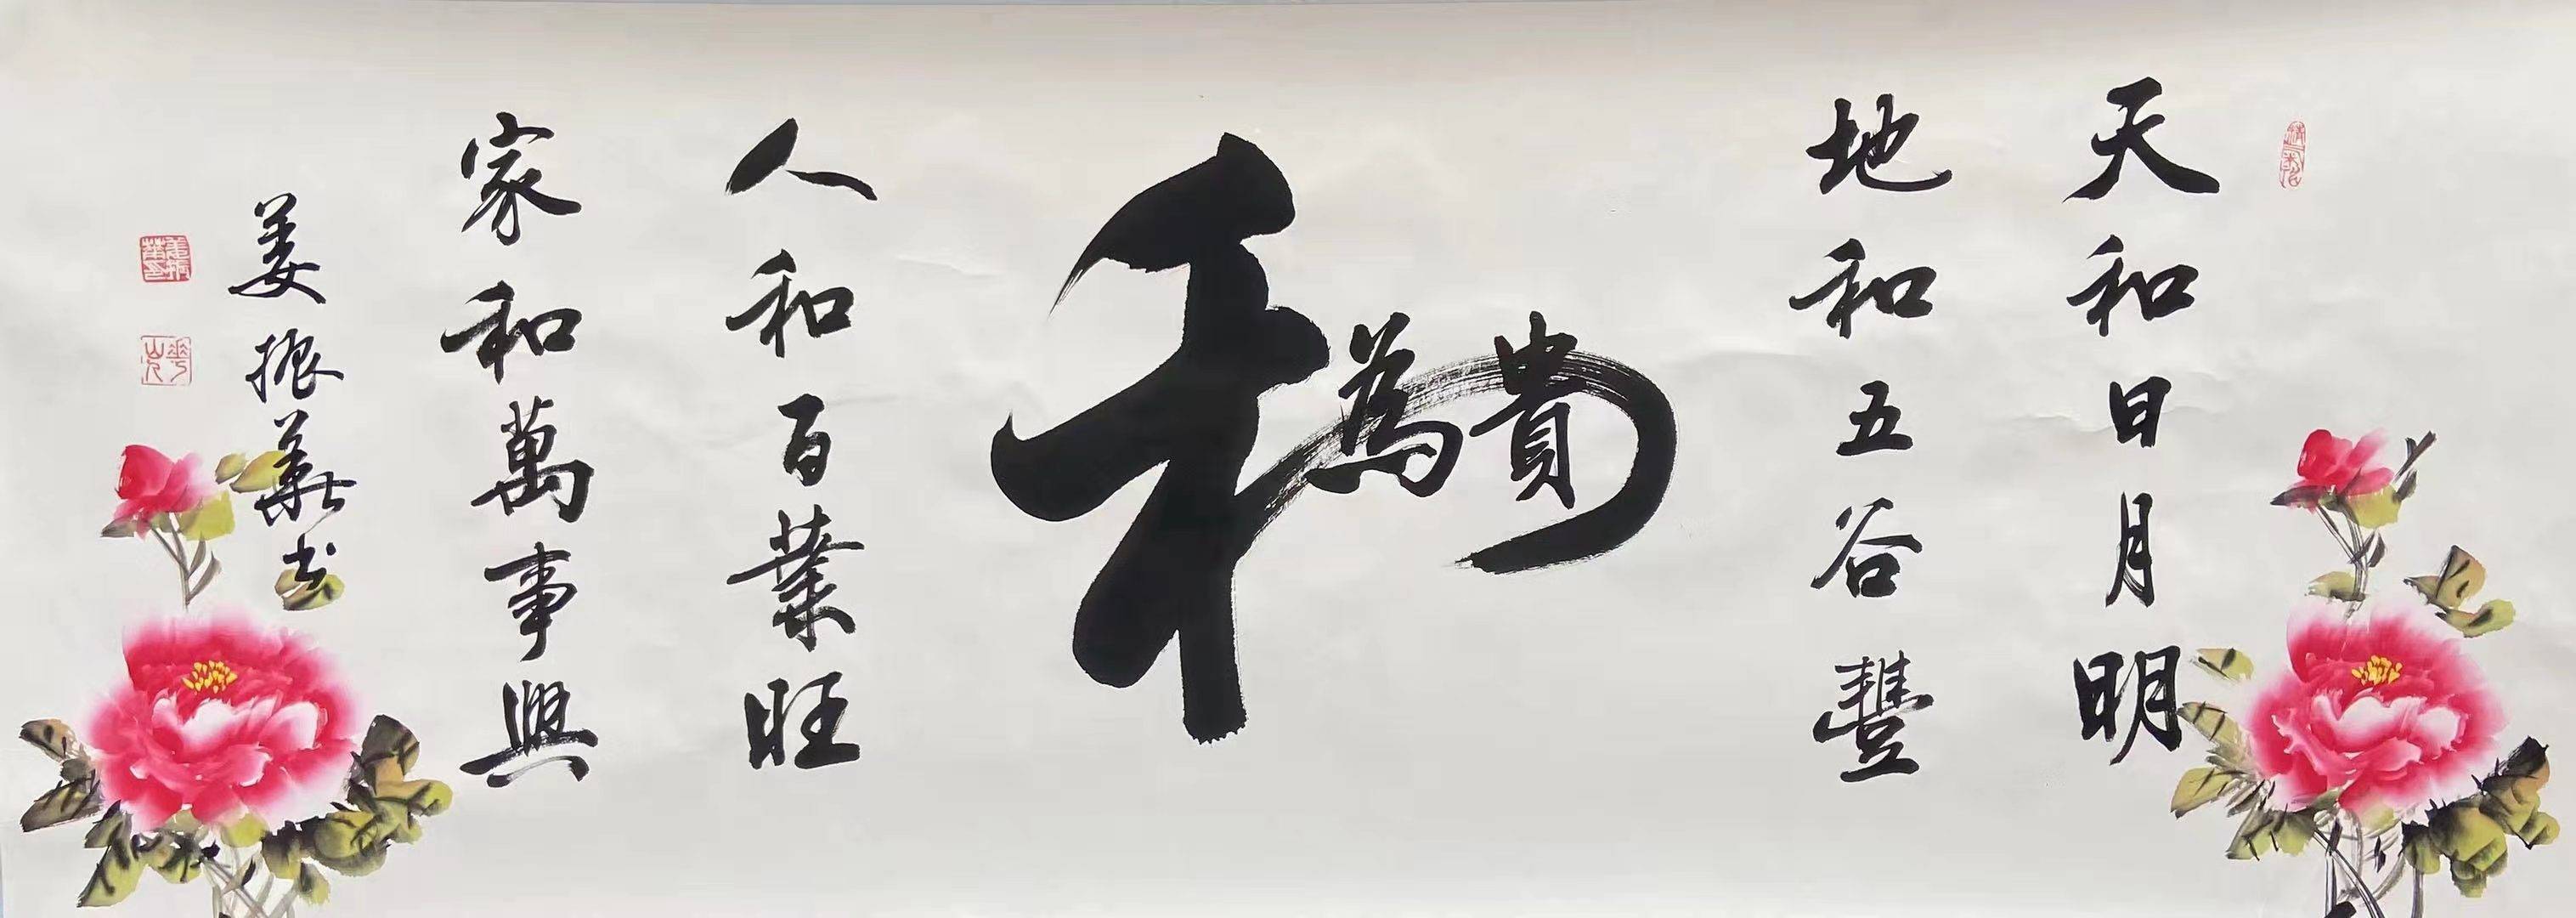 天和日月明
地和五谷豐
和為貴
人和百業旺
家和萬事興
姜振華書
姜振華印